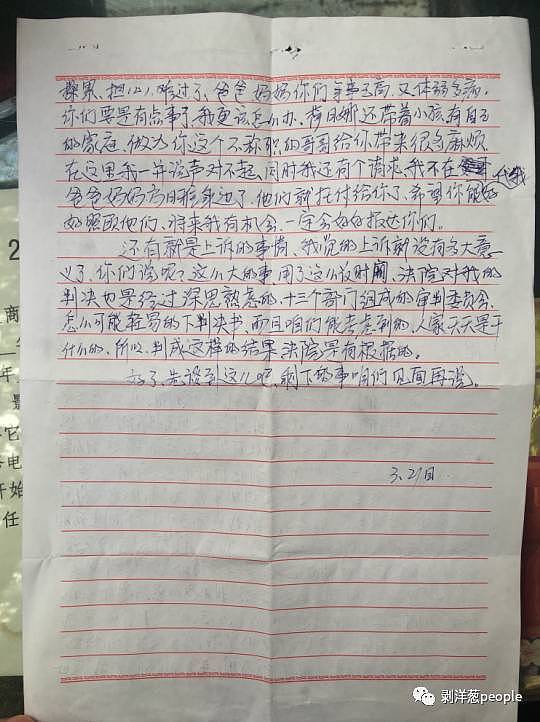 操累、担心、难过了、爸爸妈妈你们年事已高,又体弱多病,
你们要是有点事了,我更该怎么办、 还带着小孩有自己
的家庭、做为你这个不称职的哥哥给你带来很多麻烦
在这里我一并说声对不起、同时我还有个请求、我不在
爸爸妈妈 身边了、他们就托付给你了、希望你能好
好照顾他们、将来我有机会、一定会好好报达你们。
还有就是上诉的事情、我觉的上诉就没有多大意
义了、你们说呢?这么大的事、用了这么长时间、法院对我的
判决也是经过深思熟虑的、十三个部门组成的审判委员会、
怎么可能轻易的下判决书、而且咱们能考虑到的、人家天天是干
什么的、所以、判成这样的结果法院是有根据的。
好了、先谈到这儿吧、剩下的事咱们见面再说。
3、21日
2
商
年
它
电
开始
任
剥洋葱people